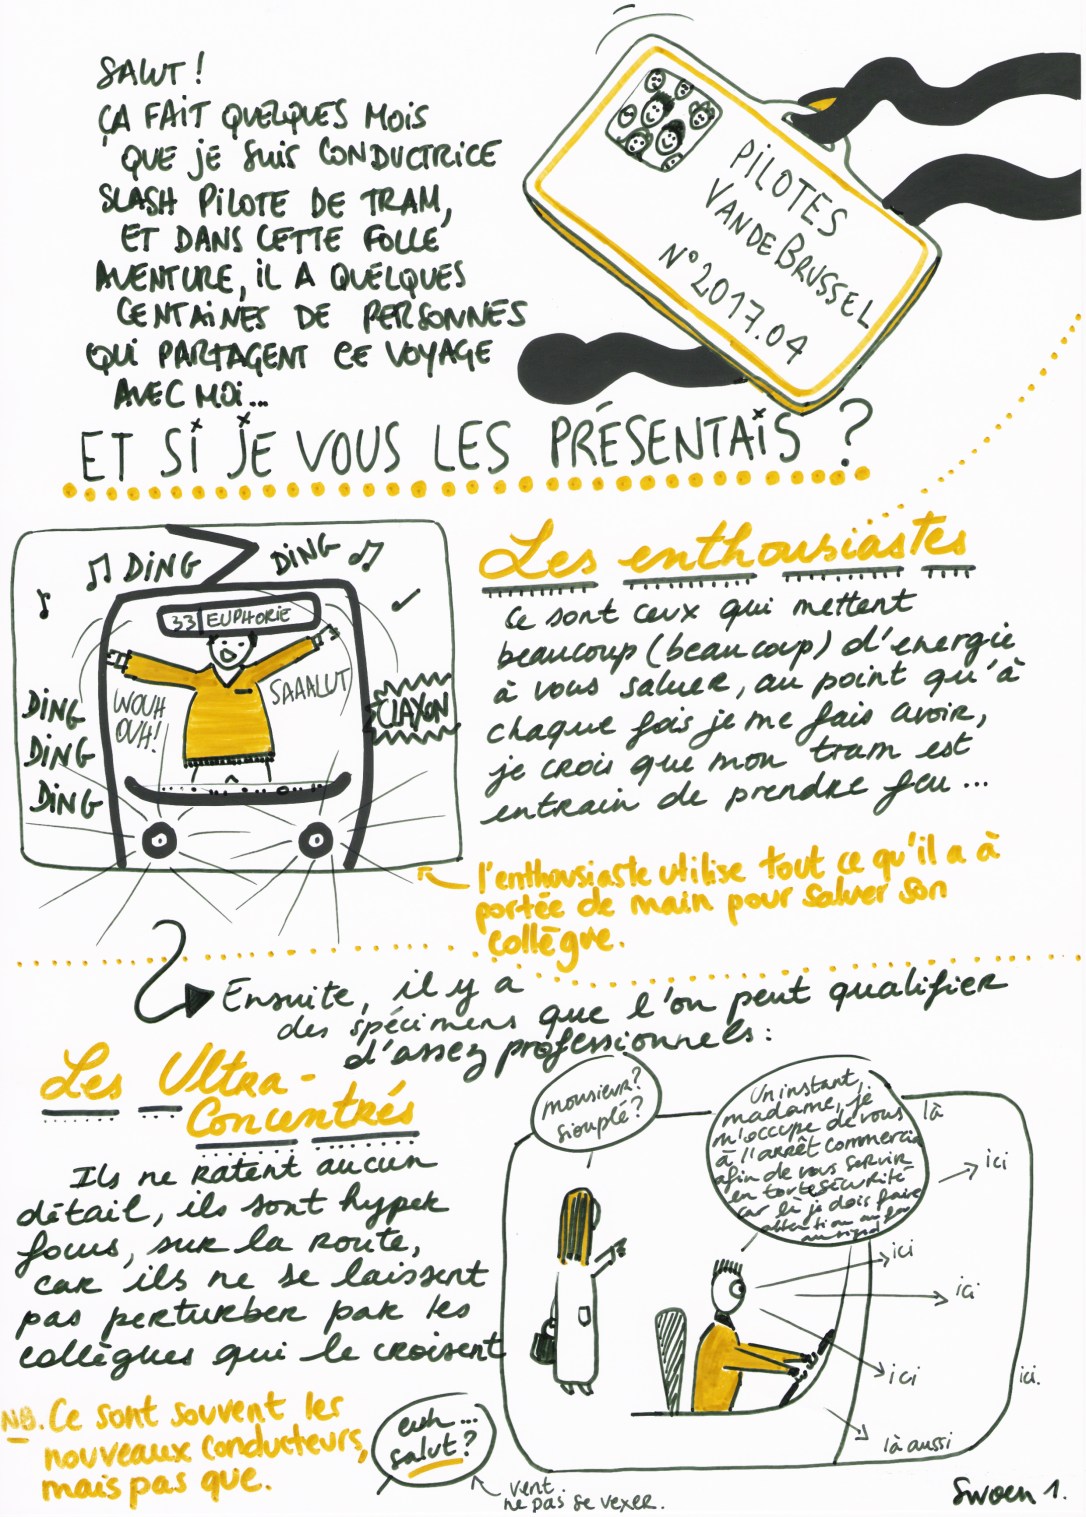 SALUT !
ÇA FAIT QUELQUES MOIS
QUE JE SUIS CONDUCTRICE
SLASH PILOTE DE TRAM,
ET DANS CETTE FOLLE
AVENTURE, IL A QUELQUES
CENTAINES DE PERSONNES
QUI PARTAGENT CE VOYAGE
AVEC MOI...
PILOTES
VANDEBRUSSEL
N°2017.04
ET SI JE VOUS LES PRÉSENTAIS ?
DING
DING
33 EUPHORIE
WOUH
OUH!
SAAALUT
CLAXON
DING
DING
DING
Les enthousiastes
Ce sont ceux qui mettent
beaucoup (beaucoup) d'energie
à vous saluer, au point qu'à
chaque fois je me fais avoir,
je crois que mon tram est
entrain de prendre feu...
l'enthousiaste utilise tout ce qu'il a à
portée de main pour saluer son
collègue.
Ensuite, il y a
des spécimens que l'on peut qualifier
d'assez professionnels :
Les Ultra-
Concentrés
Ils ne ratent aucun
détail, ils sont hyper
focus, sur la route,
car ils ne se laissent
pas perturber par les
collègues qui le croisent
NB. Ce sont souvent les
nouveaux conducteurs,
mais pas que.
monsieur?
siouplé?
Un instant,
madame, je
m'occupe de vous
à l'arrêt commercial
afin de vous servir
en toute sécurité
car là je dois faire
attention au feu
au signal
là
ici
ici
ici
ici
ici.
là aussi
euh...
salut?
vent.
ne pas se vexer.
Swoen 1.